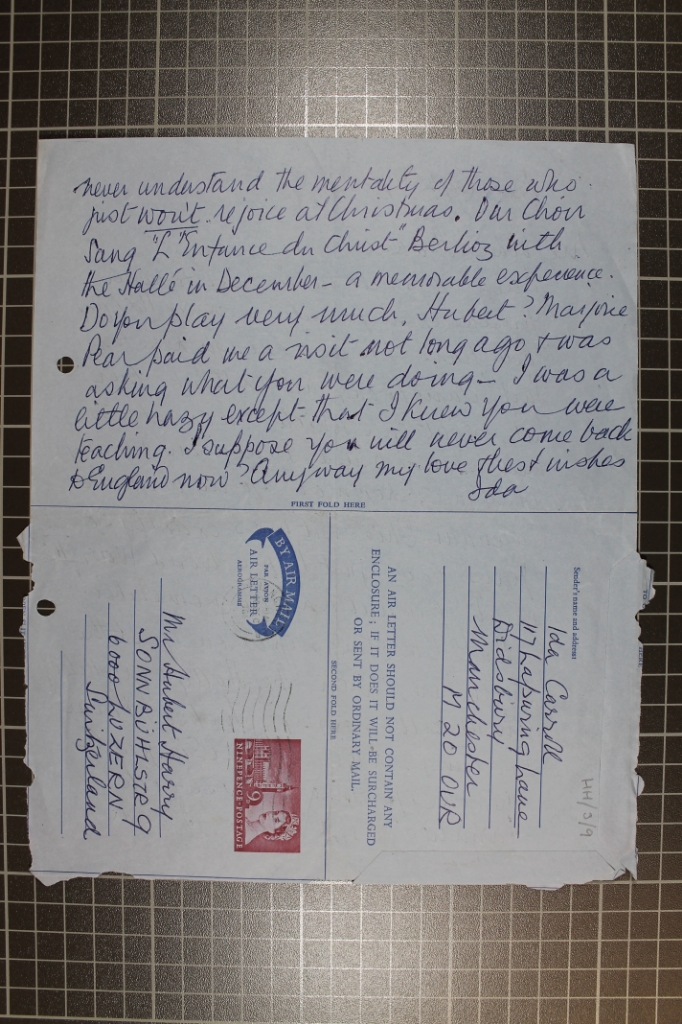 never understand the mentality of those who
just won't rejoice at Christmas. Our Choir
Sang "L'Enfance du Christ" Berlioz with
the Hallé in December - a memorable experience.
Do you play very much, Hubert? Marjorie
Pear paid me a visit not long ago & was
asking what you were doing - I was a
little hazy except that I knew you were
teaching. I suppose you will never come back
to England now? Anyway my love & best wishes
Ida
FIRST FOLD HERE
BY AIR MAIL
PAR AVION
AIR LETTER
AEROGRAMME
NINEPENCE·POSTAGE
9
Mr Hubert Harry
SONNBÜHLSTR 9
6000 LUZERN
Switzerland
SECOND FOLD HERE
Sender's name and address
Ida Carroll
117 Lapwing Lane
Didsbury
Manchester
M 20 OUR
AN AIR LETTER SHOULD NOT CONTAIN ANY
ENCLOSURE; IF IT DOES IT WILL BE SURCHARGED
OR SENT BY ORDINARY MAIL.
HH/3/9